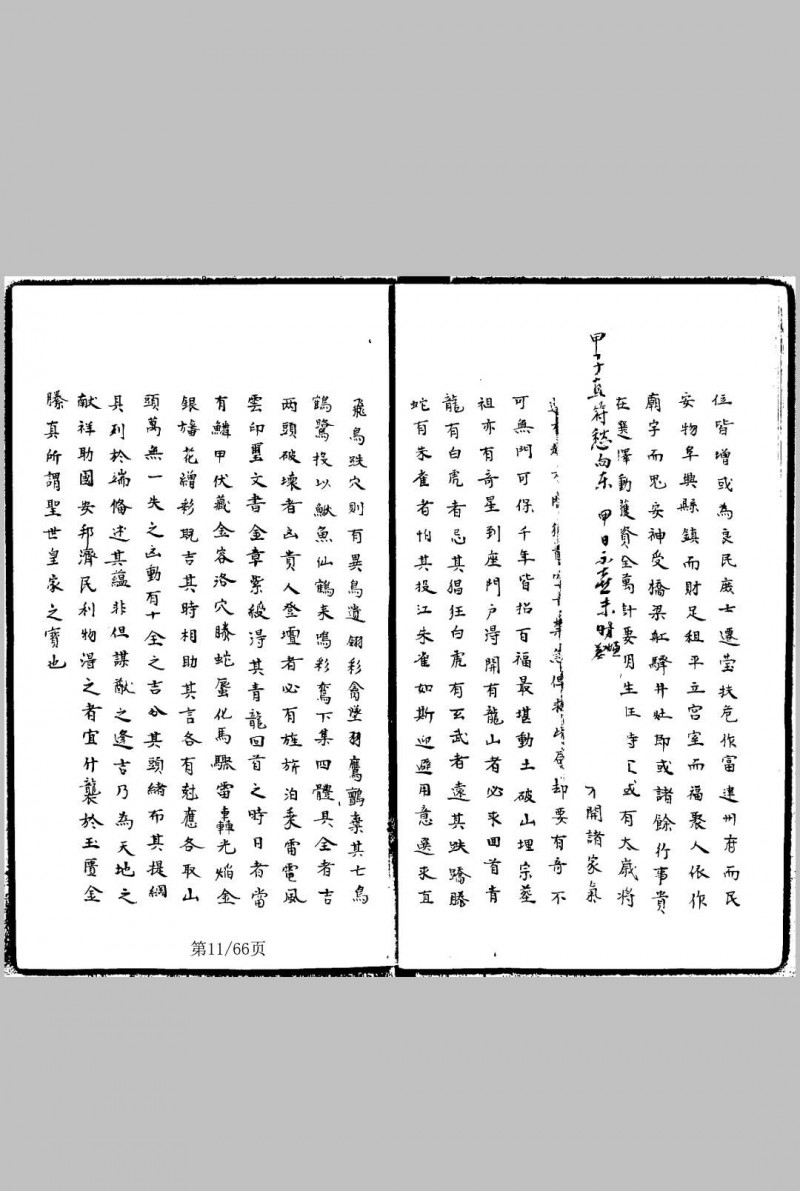 位皆增或為良民庶士遷塋扶危作富建州府而民
安物阜興縣鎮而財足組平立宮室而福聚人依作
廟宇而鬼安神受橋梁缸驛井灶即或諸餘行事貴
在選擇動獲資金萬計要用生旺時或有太歲將
甲子直符愁向东 甲日
開諸家氣
却要有奇不
可無門可保千年皆招百福最堪動土破山埋宗塟
祖亦有奇星到座門戶得開有龍山者必來回首青
龍有白虎者忌其猖狂白虎有玄武者遠其跌蹻騰
蛇有朱雀者怕其投江朱雀如斯迎避用意選來直
飛鳥跌穴則有異鳥遺翎彩禽墜羽鷹鸇棄其七鳥
鶴鷺投以鰍魚仙鶴来鳴彩鸞下集四體具全者吉
两頭破壞者凶貴人登壇者必有旌旂泊乘雷電風
雲印璽文書金章紫綬得其青龍回首之時日者當
有鱗甲伏藏金容洛穴騰蛇蜃化馬驟雷轟光焰金
銀旛花繒彩既吉其時相助其言各有尅應各取山
頭萬無一失之凶動有十全之吉分其頭緒布其提綱
具列於端倫述其蘊非但謀猷之逢吉乃為天地之
献祥助國安邦濟民利物得之者宜什襲於玉匱金
縢真所謂聖世皇家之寶也
第11/66页